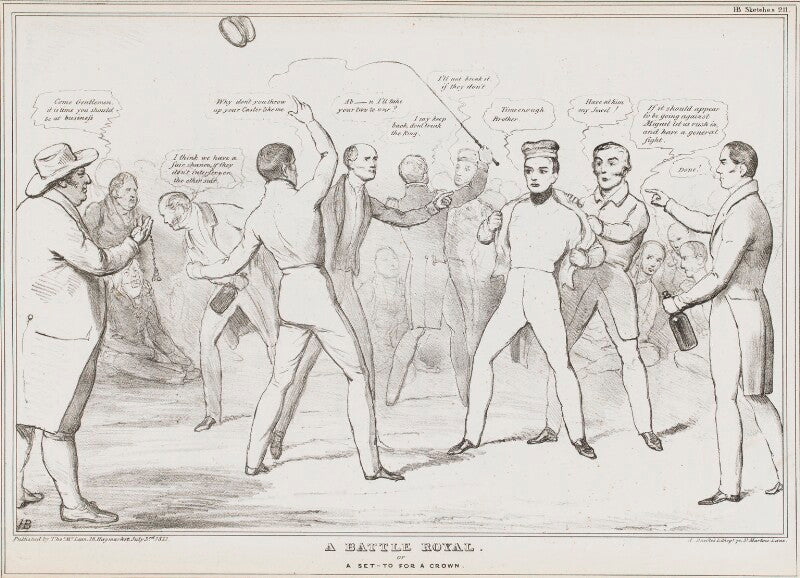 HB Sketches 211.
Come Gentlemen,
it is time you should
be at business
I think we have a
fine chance, if they
don't interfere on
the other side.
Why don't you throw
up your Castor like me
Ab——n I'll take
your two to one?
I say keep
back, dont break
the Ring.
I'll not break it
if they don't
Time enough
Brother.
Have at him
my Lucid!
If it should appear
to be going against
Miguel let us rush in,
and have a general
fight.
Done!
HB
Published by Thos. Mc.Lean, 26, Haymarket, July 3rd.
A. Ducôté's Lithogy. 70, St Martins Lane.
A BATTLE ROYAL.
or
A SET-TO FOR A CROWN.